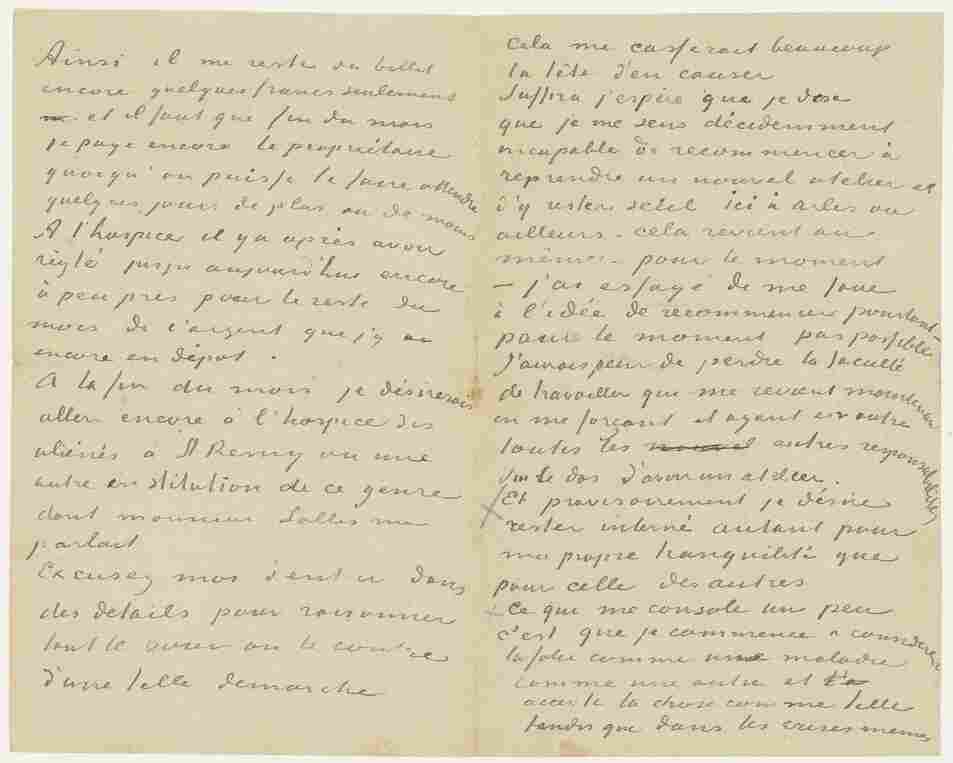 Ainsi il me reste du billet
encore quelques francs seulement
et il faut que fin du mois
je paye encore le propriétaire
quoiqu'on puisse le faire attendre
quelques jours de plus ou de moins
A l'hospice il y a après avoir
réglé jusqu'aujourd'hui encore
à peu près pour le reste du
mois de l'argent que j'y ai
encore en dépot.
A la fin du mois je désirerais
aller encore à l'hospice des
aliénés à St Remy ou une
autre institution de ce genre
dont monsieur Salles m'a
parlait
Excusez moi d'entrer dans
des details pour raisonner
tant le pour ou le contre
d'une telle demarche
Cela me casserait beaucoup
la tête d'en causer
Suffira j'espère que je dise
que je me sens décidemment
incapable de recommencer à
reprendre un nouvel atelier et
d'y rester seul ici à Arles ou
ailleurs - cela revient au
même - pour le moment
- j'ai essayé de me faire
à l'idée de recommencer pourtant
pour le moment pas possible
J'aurais peur de perdre la faculté
de travailler qui me revient maintenant
en me forçant et ayant en outre
toutes les autres responsabilités
sur le dos d'avoir un atelier.
Et provisoirement je désire
rester interné autant pour
ma propre tranquilité que
pour celle des autres
Ce qui me console un peu
c'est que je commence à considerer
la folie comme une maladie
comme une autre et
accepte la chose comme telle
tandis que dans les crises memes